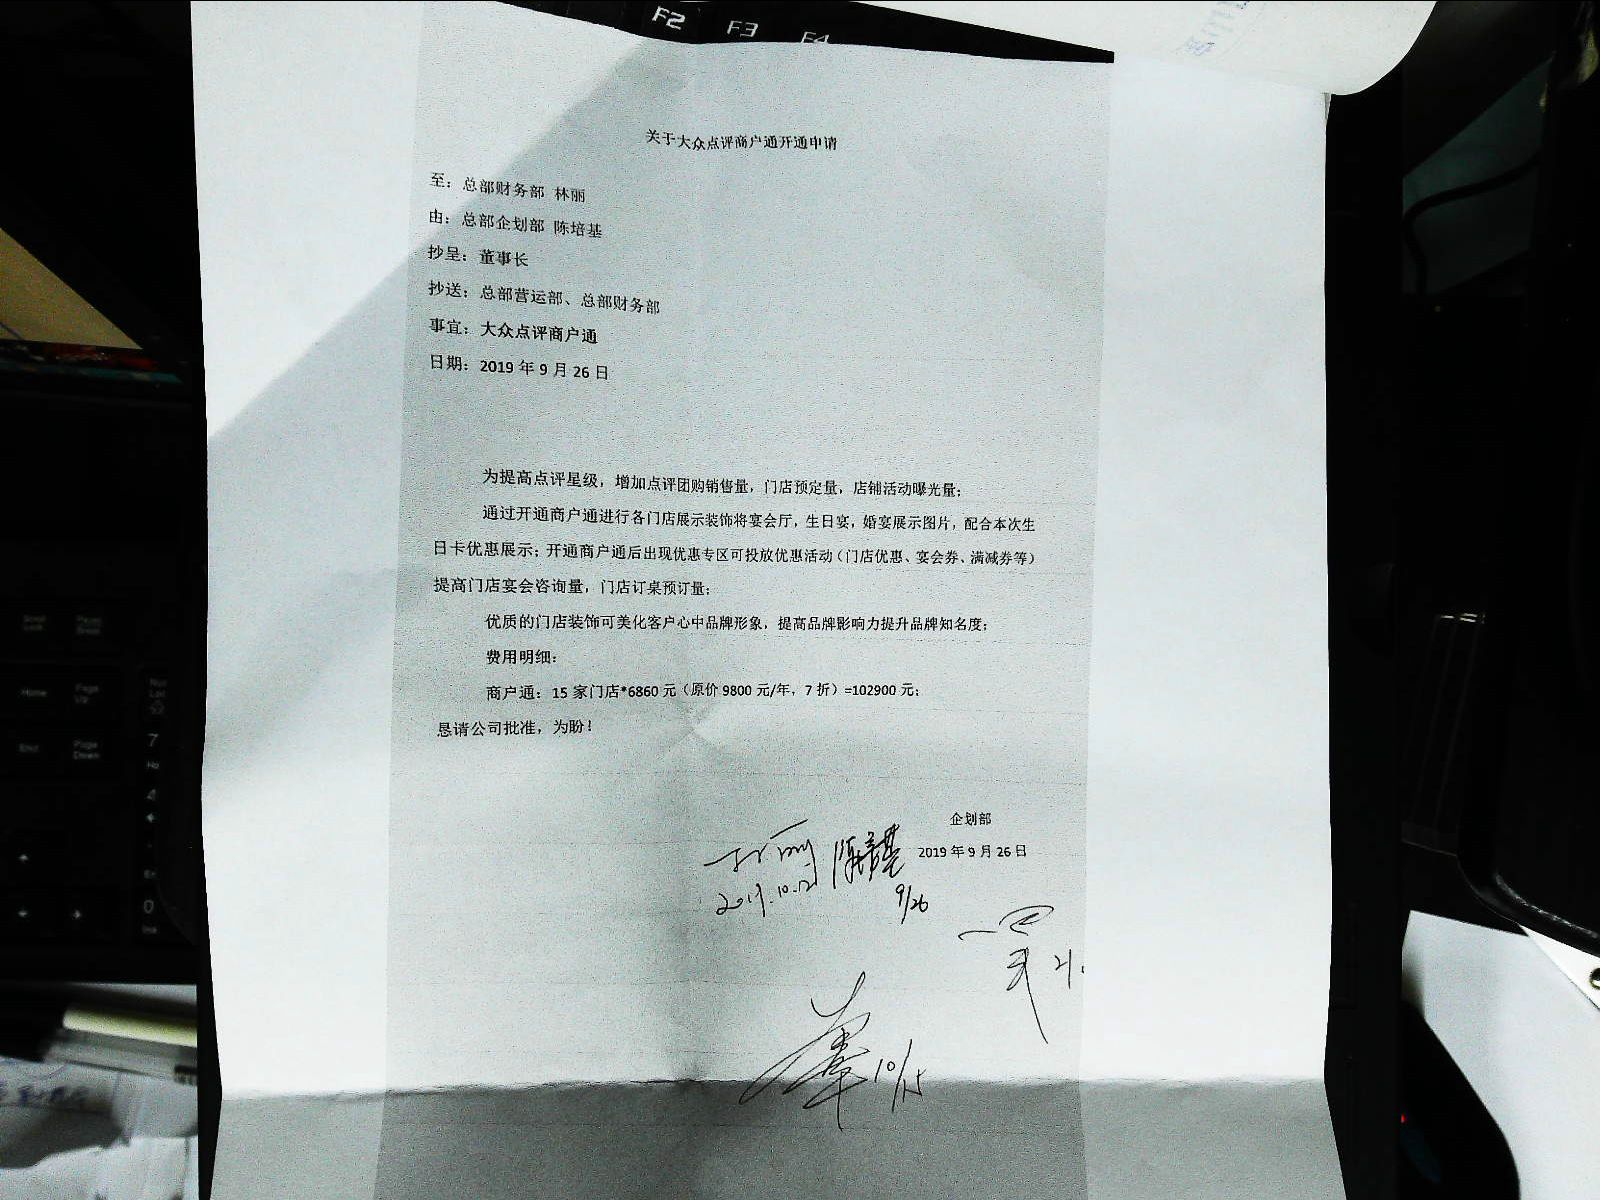 F2 F3 F4
关于大众点评商户通开通申请
至：总部财务部 林丽
由：总部企划部 陈培基
抄呈：董事长
抄送：总部营运部、总部财务部
事宜：大众点评商户通
日期：2019 年 9 月 26 日
为提高点评星级，增加点评团购销售量，门店预定量，店铺活动曝光量；
通过开通商户通进行各门店展示装饰将宴会厅，生日宴，婚宴展示图片，配合本次生
日卡优惠展示；开通商户通后出现优惠专区可投放优惠活动（门店优惠、宴会券、满减券等）
提高门店宴会咨询量，门店订桌预订量；
优质的门店装饰可美化客户心中品牌形象，提高品牌影响力提升品牌知名度；
费用明细：
商户通：15 家门店*6860 元（原价 9800 元/年，7 折）=102900 元；
恳请公司批准，为盼！
企划部
陈培基 2019 年 9 月 26 日
2019.10.12 9/26
10/15
Home Page Up
End Page Down
7
4
0